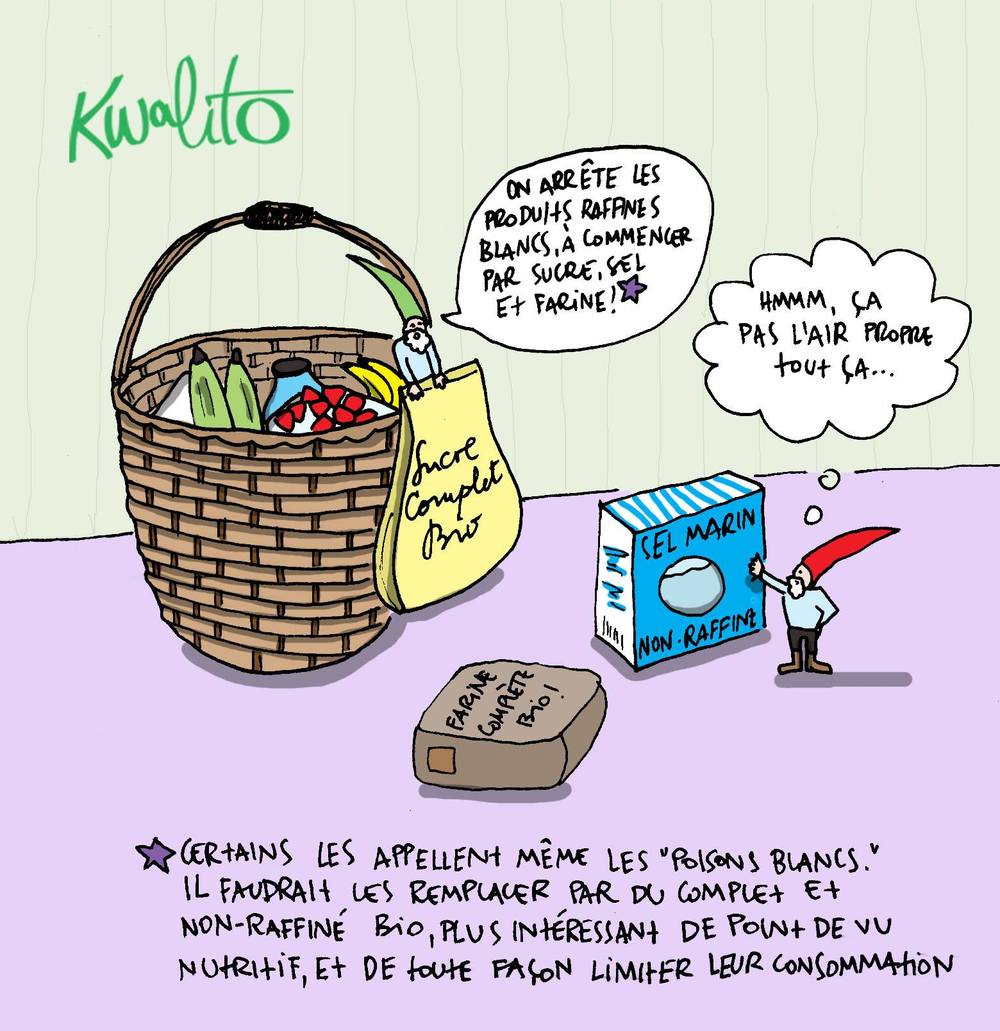 Kwalito
ON ARRÊTE LES
PRODUITS RAFFINES
BLANCS, À COMMENCER
PAR SUCRE, SEL
ET FARINE!
HMMM, ÇA
PAS L'AIR PROPRE
TOUT ÇA...
Sucre
Complet
Bio
SEL MARIN
NON-RAFFINÉ
FARINE
COMPLÈTE
BIO!
CERTAINS LES APPELLENT MÊME LES "POISONS BLANCS."
IL FAUDRAIT LES REMPLACER PAR DU COMPLET ET
NON-RAFFINÉ BIO, PLUS INTÉRESSANT DE POINT DE VU
NUTRITIF, ET DE TOUTE FAÇON LIMITER LEUR CONSOMMATION